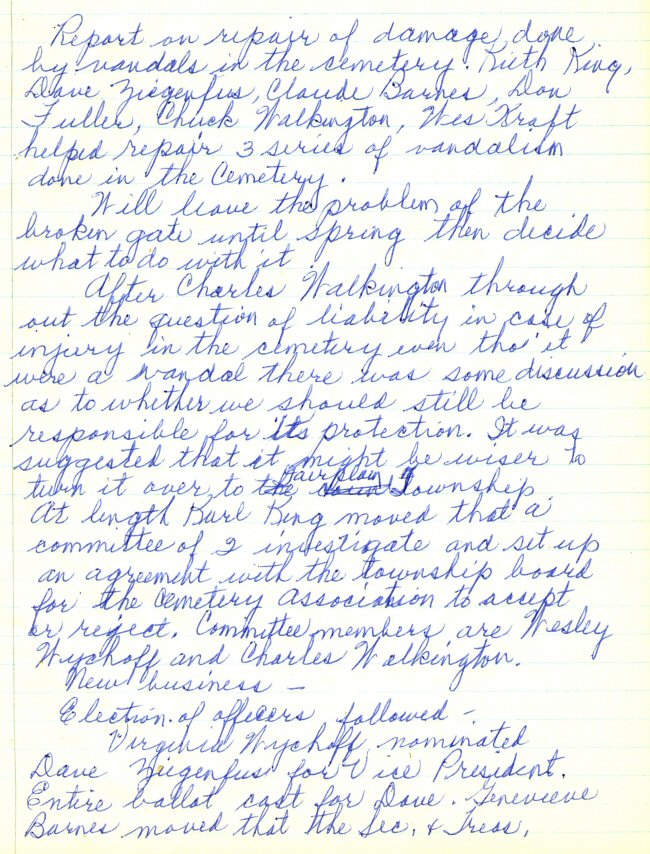 Report on repair of damage done
by vandals in the cemetery. Kieth King,
Dave Ziegenfus, Claude Barnes, Don
Fuller, Chuck Walkington, Wes Kraft
helped repair 3 series of vandalism
done in the Cemetery.
Will leave the problem of the
broken gate until spring then decide
what to do with it.
After Charles Walkington through
out the question of liability in case of
injury in the cemetery even tho' it
were a vandal there was some discussion
as to whether we should still be
responsible for its protection. It was
suggested that it might be wiser to
turn it over to Fairplain Township.
At length Karl King moved that a
committee of 2 investigate and set up
an agreement with the township board
for the Cemetery Association to accept
or reject. Committee members are Wesley
Wychoff and Charles Walkington.
New business —
Election of officers followed —
Virginia Wychoff nominated
Dave Ziegenfus for Vice President.
Entire ballot cast for Dave. Genevieve
Barnes moved that the Sec. & Treas.